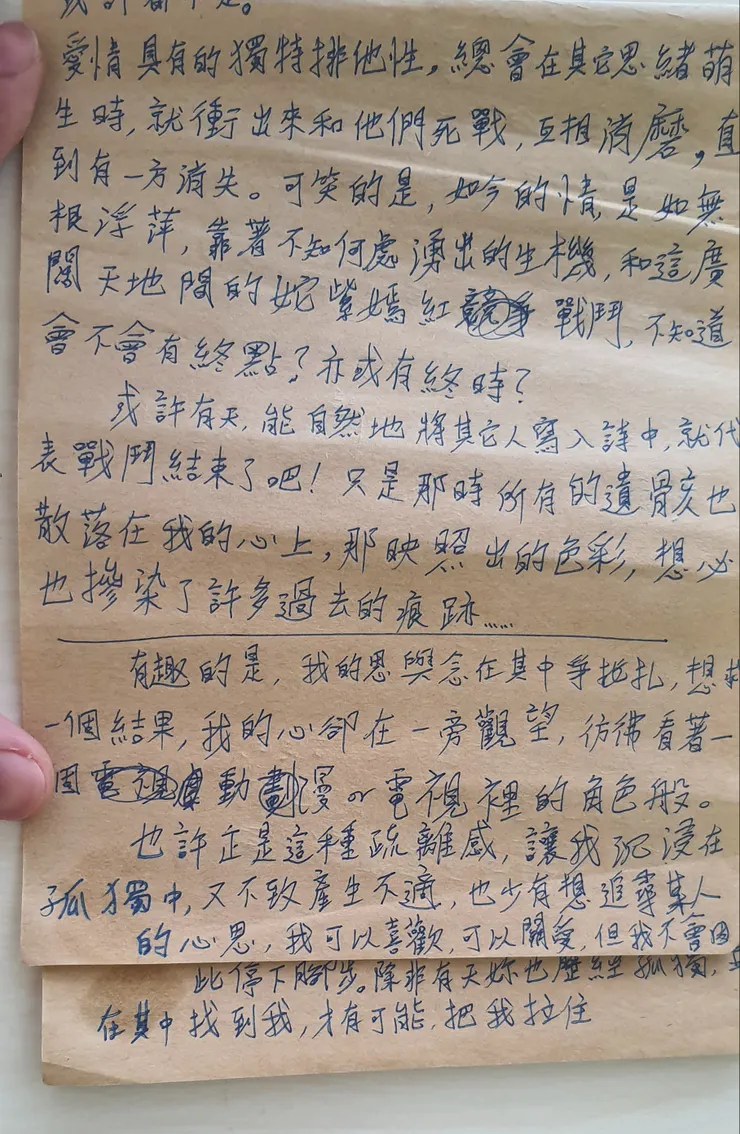 或許都不是。
愛情具有的獨特排他性，總會在其它思緒萌
生時，就衝出來和他們死戰，互相消磨，直
到有一方消失。可笑的是，如今的情是如無
根浮萍，靠著不知何處湧出的生機，和這廣
闊天地間的奼紫嫣紅戰鬥，不知道
會不會有終點？亦或有終時？
或許有天，能自然地將其它人寫入詩中，就代
表戰鬥結束了吧！只是那時所有的遺骸也
散落在我的心上，那映照出的色彩，想必
也摻染了許多過去的痕跡……
有趣的是，我的思與念在其中爭扎，想
一個結果，我的心卻在一旁觀望，彷彿看著一
動漫or電視裡的角色般。
也許正是這種疏離感，讓我沉浸在
孤獨中，又不致產生不適，也少有想追尋某人
的心思，我可以喜歡，可以關愛，但我不會因
此停下腳步。除非有天妳也歷經孤獨，
在其中找到我，才有可能，把我拉住